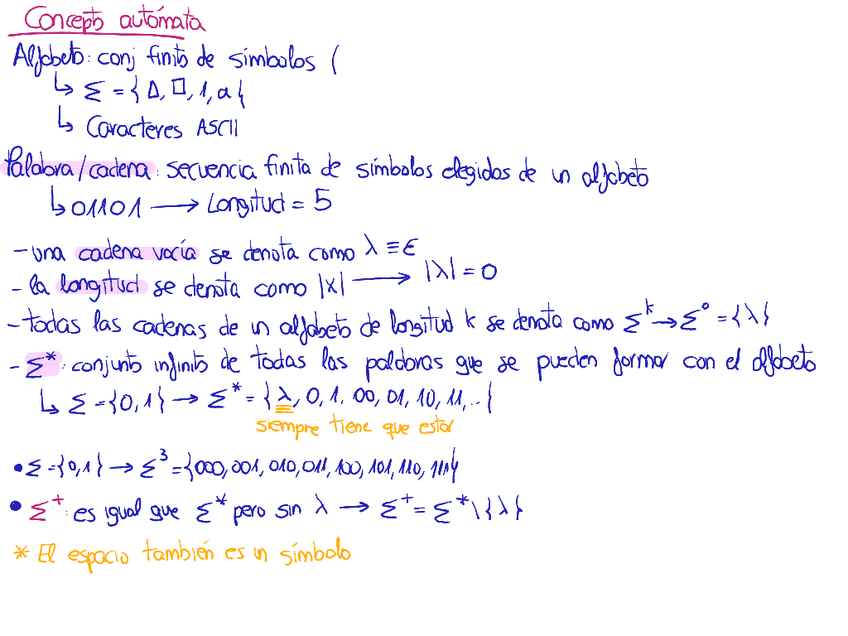 Concepto autómata
Alfabeto: conj finito de símbolos (
↳ Σ = {Δ, □, 1, a{
↳ Caracteres ASCII
Palabra/cadena: secuencia finita de símbolos elegidos de un alfabeto
↳ 01101 → Longitud = 5
- una cadena vacía se denota como λ ≡ ε
- la longitud se denota como |x| → |λ| = 0
- todas las cadenas de un alfabeto de longitud k se denota como Σ^k → Σ^0 = {λ}
- Σ*: conjunto infinito de todas las palabras que se pueden formar con el alfabeto
↳ Σ = {0,1} → Σ* = {λ, 0, 1, 00, 01, 10, 11,..{
siempre tiene que estar
• Σ = {0,1} → Σ^3 = {000, 001, 010, 011, 100, 101, 110, 111}
• Σ^+: es igual que Σ* pero sin λ → Σ^+ = Σ* \ {λ}
* El espacio también es un símbolo